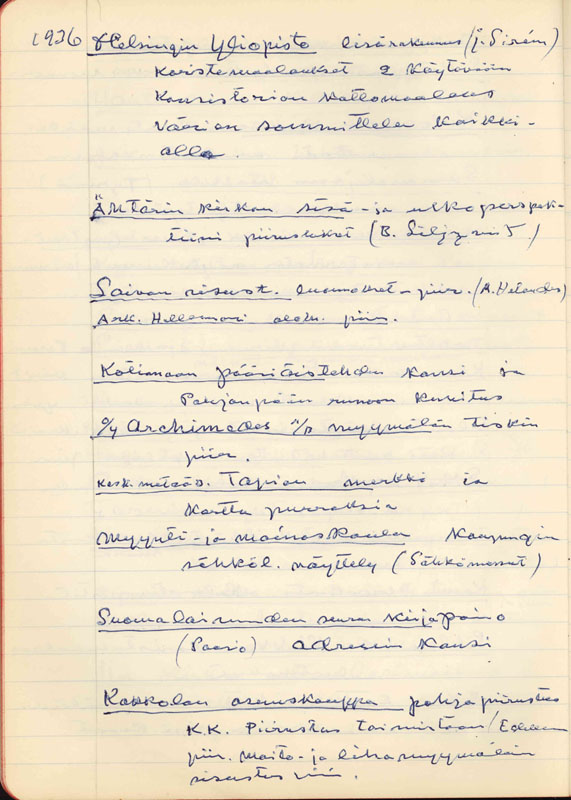 1936 Helsingin Yliopisto lisärakennus (J. Sirén)
Koristemaalaukset 2 Käytävään
Konsistorion Kattomaalaus
Värien sommittelu kaikki-
alla.
Ähtärin kirkon sisä- ja ulkoperspek-
tiivi piirustukset (B. Liljeqvist.)
Laivan sisust. luonnokset - piir. (R. Helander)
Ark. Hellemari piir.
Kotimaan pääsiäislehden kansi ja
Pohjanpään runoon kuvitus
O/Y Archimedes A/B myymälän tiskin
piir.
Kesk. metsäs. Tapion merkki ja
Kartta
Myynti- ja mainoskaula Kaupungin
sähköl. näyttely (Sähkömessut)
Suomalaisuuden seuran Kirjapaino
(Paasio) adressin Kansi
Kokkolan osuuskauppa pohjapiirustus
K.K. Piirustus toimistoon/
piir. Maito- ja lihamyymälän
sisustus piir.